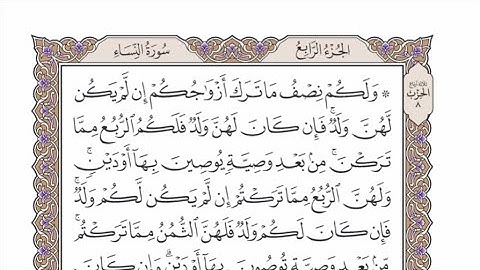 سُورَةُ النِّسَاءِ
الجُزْءُ الرَّابِعُ
۞ وَلَكُمْ نِصْفُ مَا تَرَكَ أَزْوَٰجُكُمْ إِن لَّمْ يَكُن
لَّهُنَّ وَلَدٌۚ فَإِن كَانَ لَهُنَّ وَلَدٌ فَلَكُمُ ٱلرُّبُعُ مِمَّا
تَرَكْنَۚ مِنۢ بَعْدِ وَصِيَّةٍ يُوصِينَ بِهَآ أَوْ دَيْنٍۚ
وَلَهُنَّ ٱلرُّبُعُ مِمَّا تَرَكْتُمْ إِن لَّمْ يَكُن لَّكُمْ وَلَدٌۚ
فَإِن كَانَ لَكُمْ وَلَدٌ فَلَهُنَّ ٱلثُّمُنُ مِمَّا تَرَكْتُمۚ
مِّنۢ بَعْدِ وَصِيَّةٍ تُوصُونَ بِهَآ أَوْ دَيْنٍۗ وَإِن كَانَ
الحِزْبُ
٨